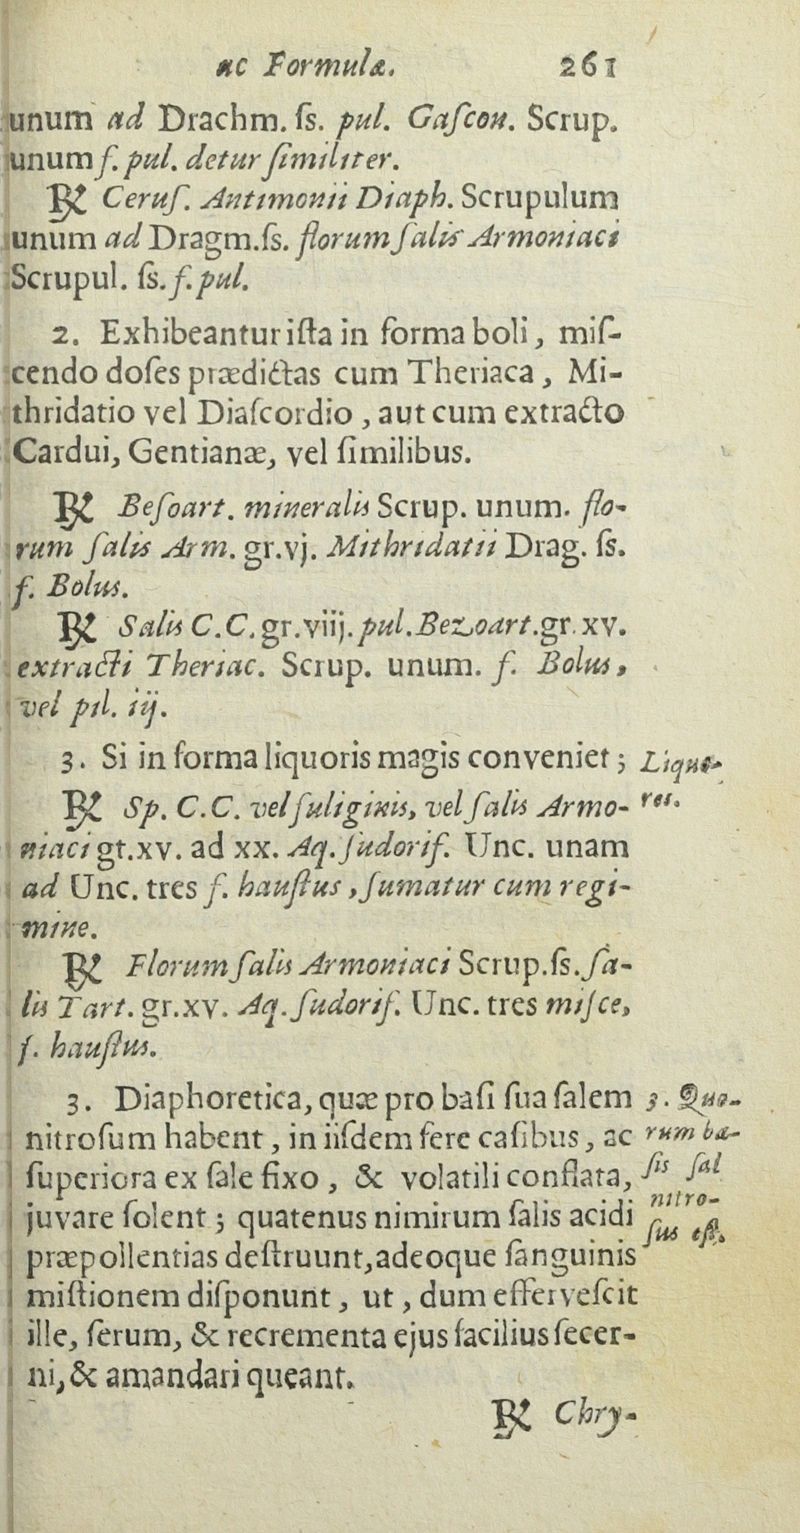 ac Formulæ. 261
unum ad Drachm. ſs. pul. Gaſcon. Scrup.
unum f. pul. detur ſimiliter.
℞ Ceruſ. Antimonii Diaph. Scrupulum
unum ad Dragm.ſs. florum ſalis Armoniaci
Scrupul. ſs. f. pul.
2. Exhibeantur iſta in forma boli, miſ-
cendo doſes prædictas cum Theriaca, Mi-
thridatio vel Diaſcordio, aut cum extracto
Cardui, Gentianæ, vel ſimilibus.
℞ Beſoart. mineralis Scrup. unum. flo-
rum ſalis Arm. gr.vj. Mithridatii Drag. ſs.
f. Bolus.
℞ Salis C.C. gr.viij. pul. Bezoart. gr. xv.
extracti Theriac. Scrup. unum. f. Bolus,
vel pil. iij.
3. Si in forma liquoris magis conveniet; Liquo-
℞ Sp. C.C. vel fuliginis, vel ſalis Armo- res.
niaci gt.xv. ad xx. Aq. ſudorif. Unc. unam
ad Unc. tres f. hauſtus, ſumatur cum regi-
mine.
℞ Florum ſalis Armoniaci Scrup.ſs. ſa-
lis Tart. gr.xv. Aq. ſudorif. Unc. tres miſce,
f. hauſtus.
3. Diaphoretica, quæ pro baſi ſua ſalem 3. Quo-
nitroſum habent, in iiſdem fere caſibus, ac rum ba-
ſuperiora ex ſale fixo, & volatili conflata, ſis ſal
juvare ſolent; quatenus nimirum ſalis acidi nitro-
præpollentias deſtruunt, adeoque ſanguinis ſus eſt.
miſtionem diſponunt, ut, dum efferveſcit
ille, ſerum, & recrementa ejus facilius ſecer-
ni, & amandari queant.
℞ Chry-